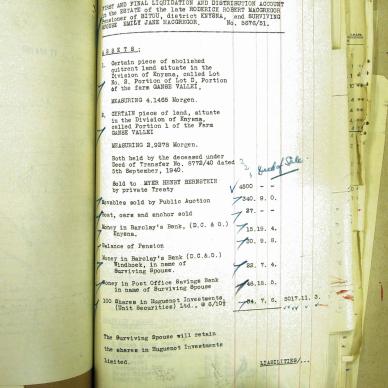 FIRST AND FINAL LIQUIDATION AND DISTRIBUTION ACCOUNT
in the ESTATE of the late RODERICK ROBERT MACGREGOR
Pensioner of BITOU, district KNYSNA, and SURVIVING
SPOUSE EMILY JANE MACGREGOR. No. 5676/51.
ASSETS:
1. Certain piece of abolished
quitrent land situate in the
Division of Knysna, called Lot
No. 2, Portion of Lot D, Portion
of the farm GANSE VALLEI,
MEASURING 4.1465 Morgen.
2. CERTAIN piece of land, situate
in the Division of Knysna,
called Portion 1 of the Farm
GANSE VALLEI
MEASURING 2.9278 Morgen.
Both held by the deceased under
Deed of Transfer No. 8772/40 dated
5th September, 1940.
Deed of Sale
Sold to MYER HENRY BERNSTEIN
by private Treaty 4500 - -
Movables sold by Public Auction 340. 9. 0.
Boat, oars and anchor sold 27. - -
Money in Barclay's Bank, (D.C. & O.)
Knysna. 15.19. 4.
Balance of Pension 20. 9. 8.
Money in Barclay's Bank (D.C.&O.)
Windhoek, in name of
Surviving Spouse. 22. 7. 4.
Money in Post Office Savings Bank
in name of Surviving Spouse
100 Shares in Huguenot Investments
(Unit Securities) Ltd., 7. 6. 5017.11. 3.
The Surviving Spouse will retain
the shares in Huguenot Investments
limited.
LIABILITIES/...